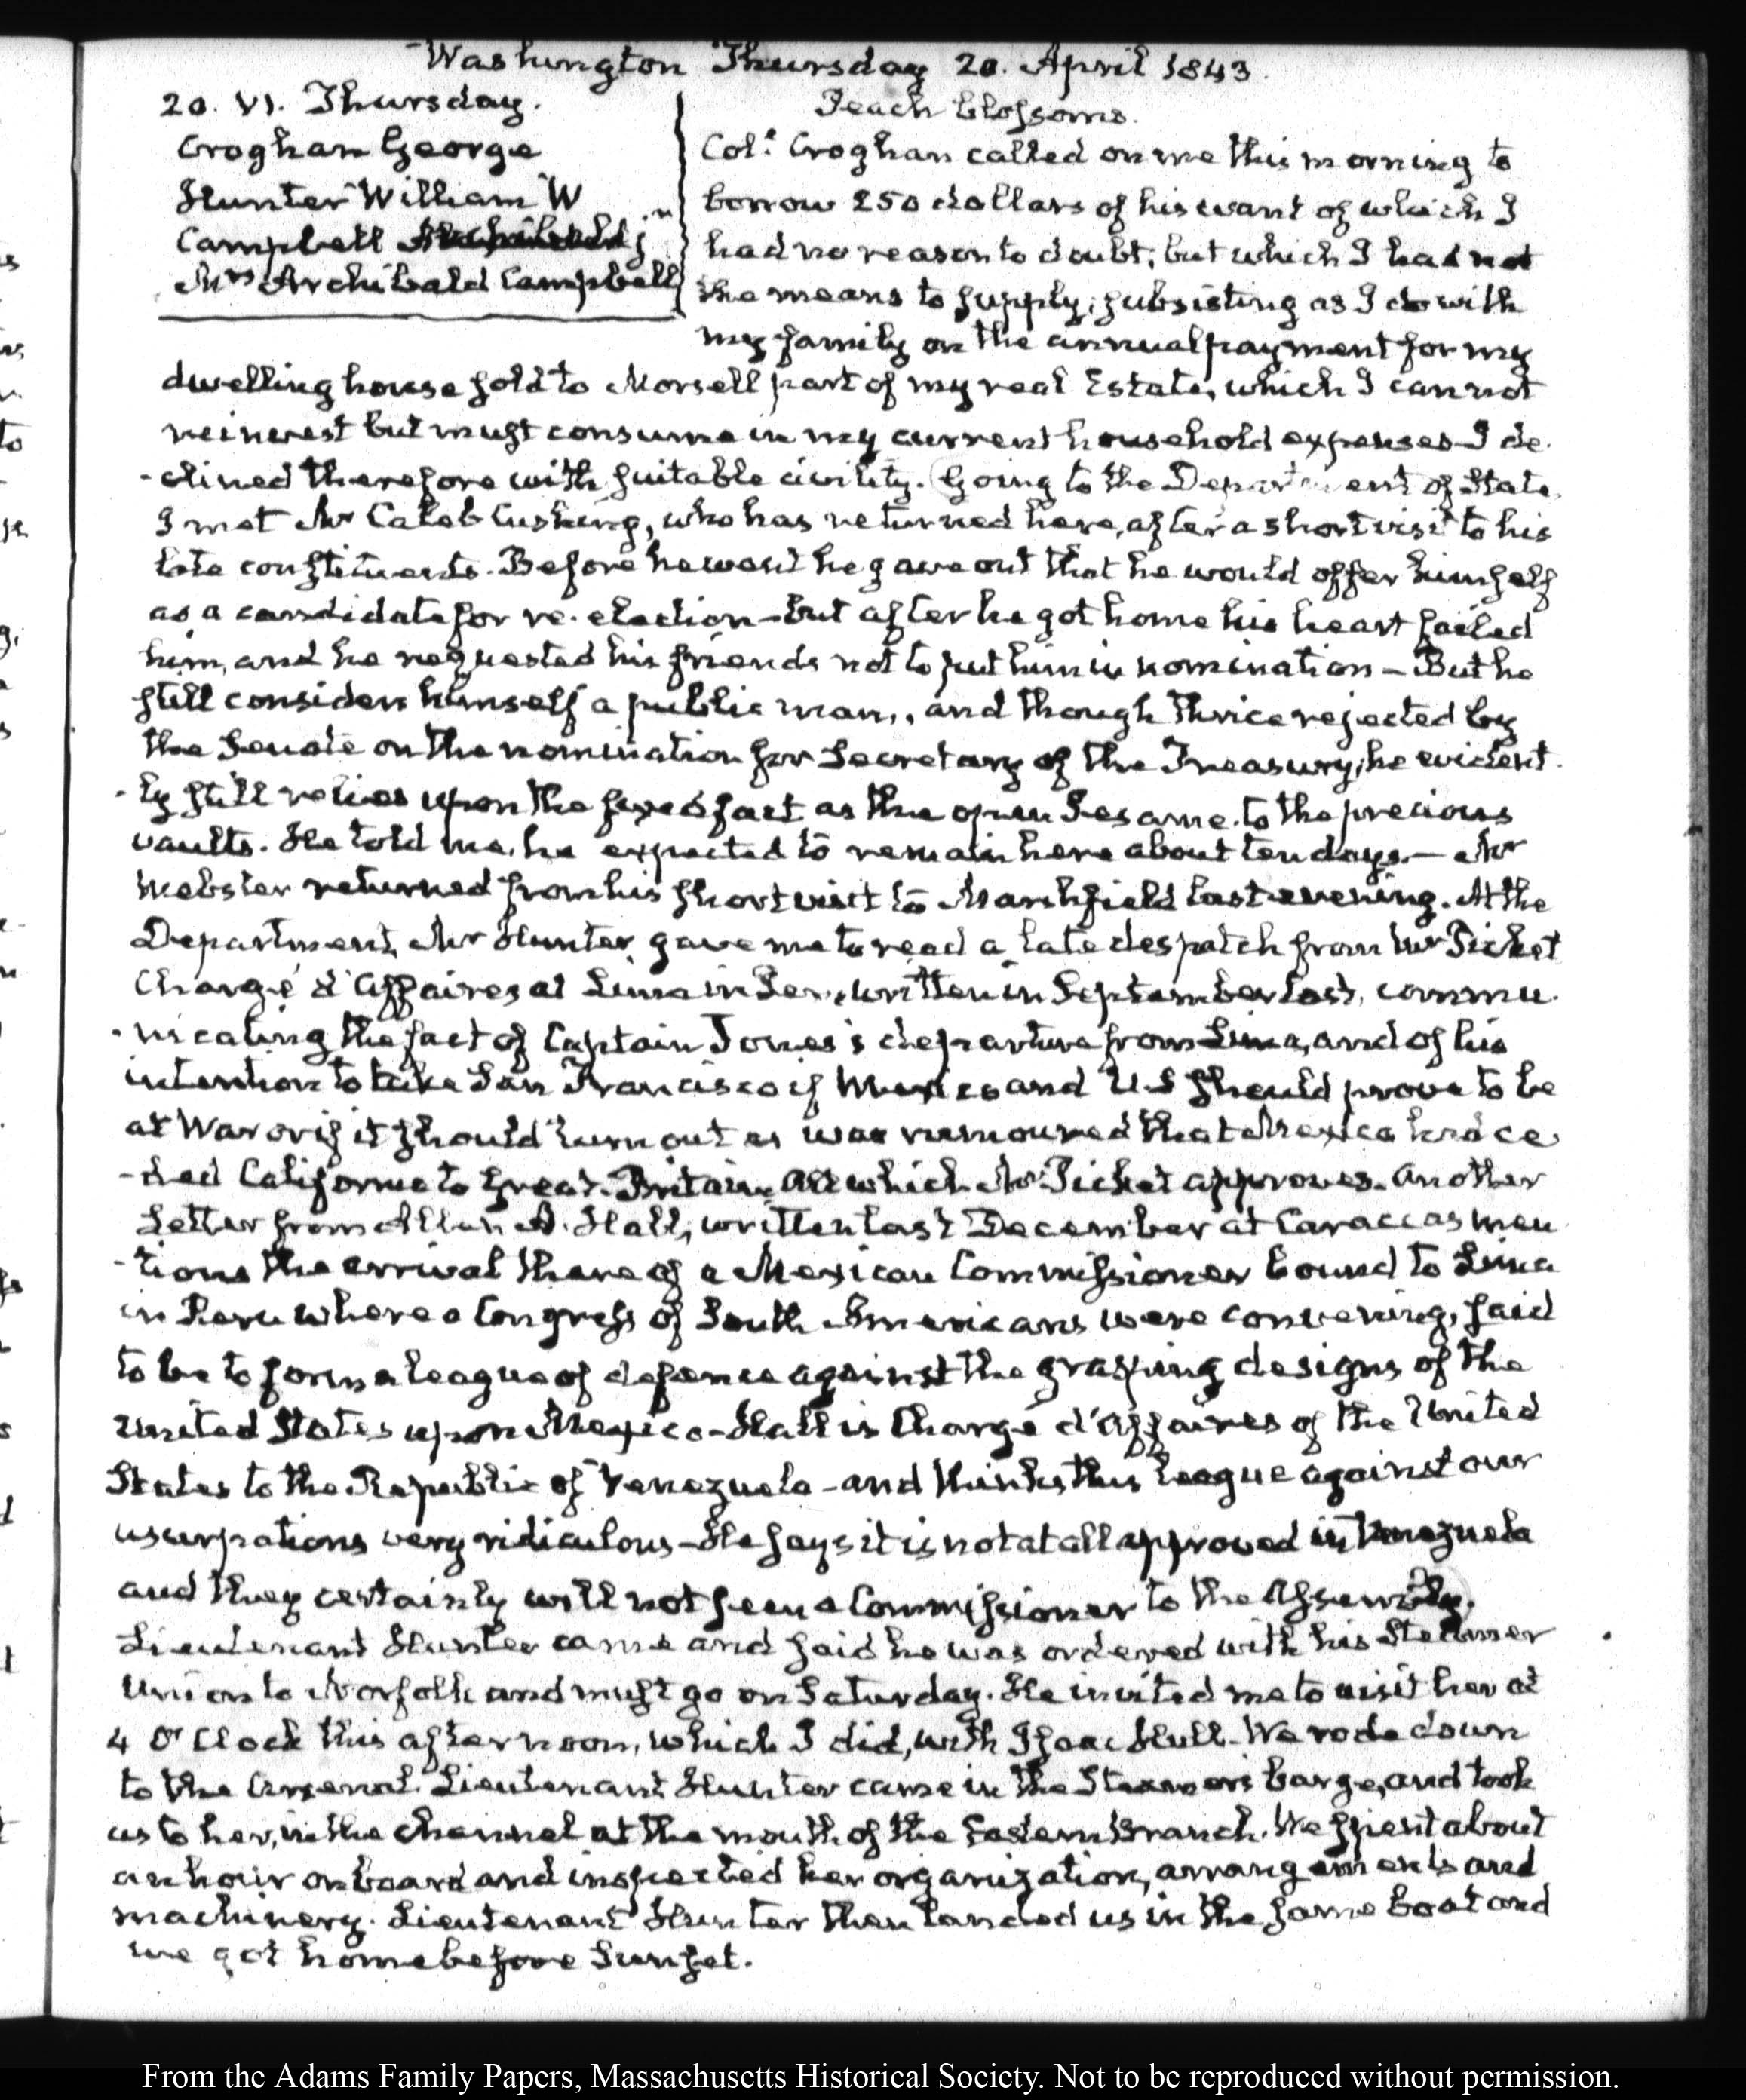 Washington Thursday 20. April 1843.
20. VI. Thursday.
Croghan George
Hunter William W
Campbell
Mrs Archibald Campbell
Peach blossoms.
Col. Croghan called on me this morning to
borrow 250 dollars of his want of which I
had no reason to doubt, but which I had not
the means to supply, subsisting as I do with
my family on the annual payment for my
dwelling house sold to Morsell part of my real Estate, which I cannot
reinvest but must consume in my current household expenses I de-
-clined therefore with suitable civility. Going to the Department of State
I met Mr Caleb Cushing, who has returned here, after a short visit to his
late constituents. Before he went he gave out that he would offer himself
as a candidate for re-election - but after he got home his heart failed
him, and he requested his friends not to put him in nomination - But he
still considers himself a public man, and though thrice rejected by
the Senate on the nomination for Secretary of the Treasury, he evident-
-ly still relies upon the fact as the open Sesame to the precious
vaults. He told me, he expected to remain here about ten days. - Mr
Webster returned from his short visit to Marshfield last evening. At the
Department, Mr Hunter gave me to read a late despatch from Mr Picket
Chargé d'Affaires at Lima in Peru, written in September last, commu-
-nicating the fact of Captain Jones's departure from Lima, and of his
intention to take San Francisco if Mexico and U.S should prove to be
at War or if it should turn out as was rumoured that Mexico had ce-
-ded California to Great-Britain. All which Mr Picket approves. Another
Letter from Allen A. Hall, written last December at Caraccas men-
-tions the arrival there of a Mexican Commissioner bound to Lima
in Peru where a Congress of South Americans were convening, said
to be to form a league of defence against the grasping designs of the
United States upon Mexico - Hall is Chargé d'Affaires of the United
States to the Republic of Venezuela - and thinks this league against our
usurpations very ridiculous - He says it is not at all approved in Venezuela
and they certainly will not send a Commissioner to the Assembly.
Lieutenant Hunter came and said he was ordered with his Steamer
Union to Norfolk and must go on Saturday. He invited me to visit her at
4 O'Clock this afternoon, which I did, with Isaac Hull. We rode down
to the Arsenal. Lieutenant Hunter came in the Steamer's barge, and took
us to her, in the channel at the mouth of the Eastern Branch. We spent about
an hour on board and inspected her organization, arrangements and
machinery. Lieutenant Hunter then landed us in the same boat and
we got home before Sunset.
From the Adams Family Papers, Massachusetts Historical Society. Not to be reproduced without permission.